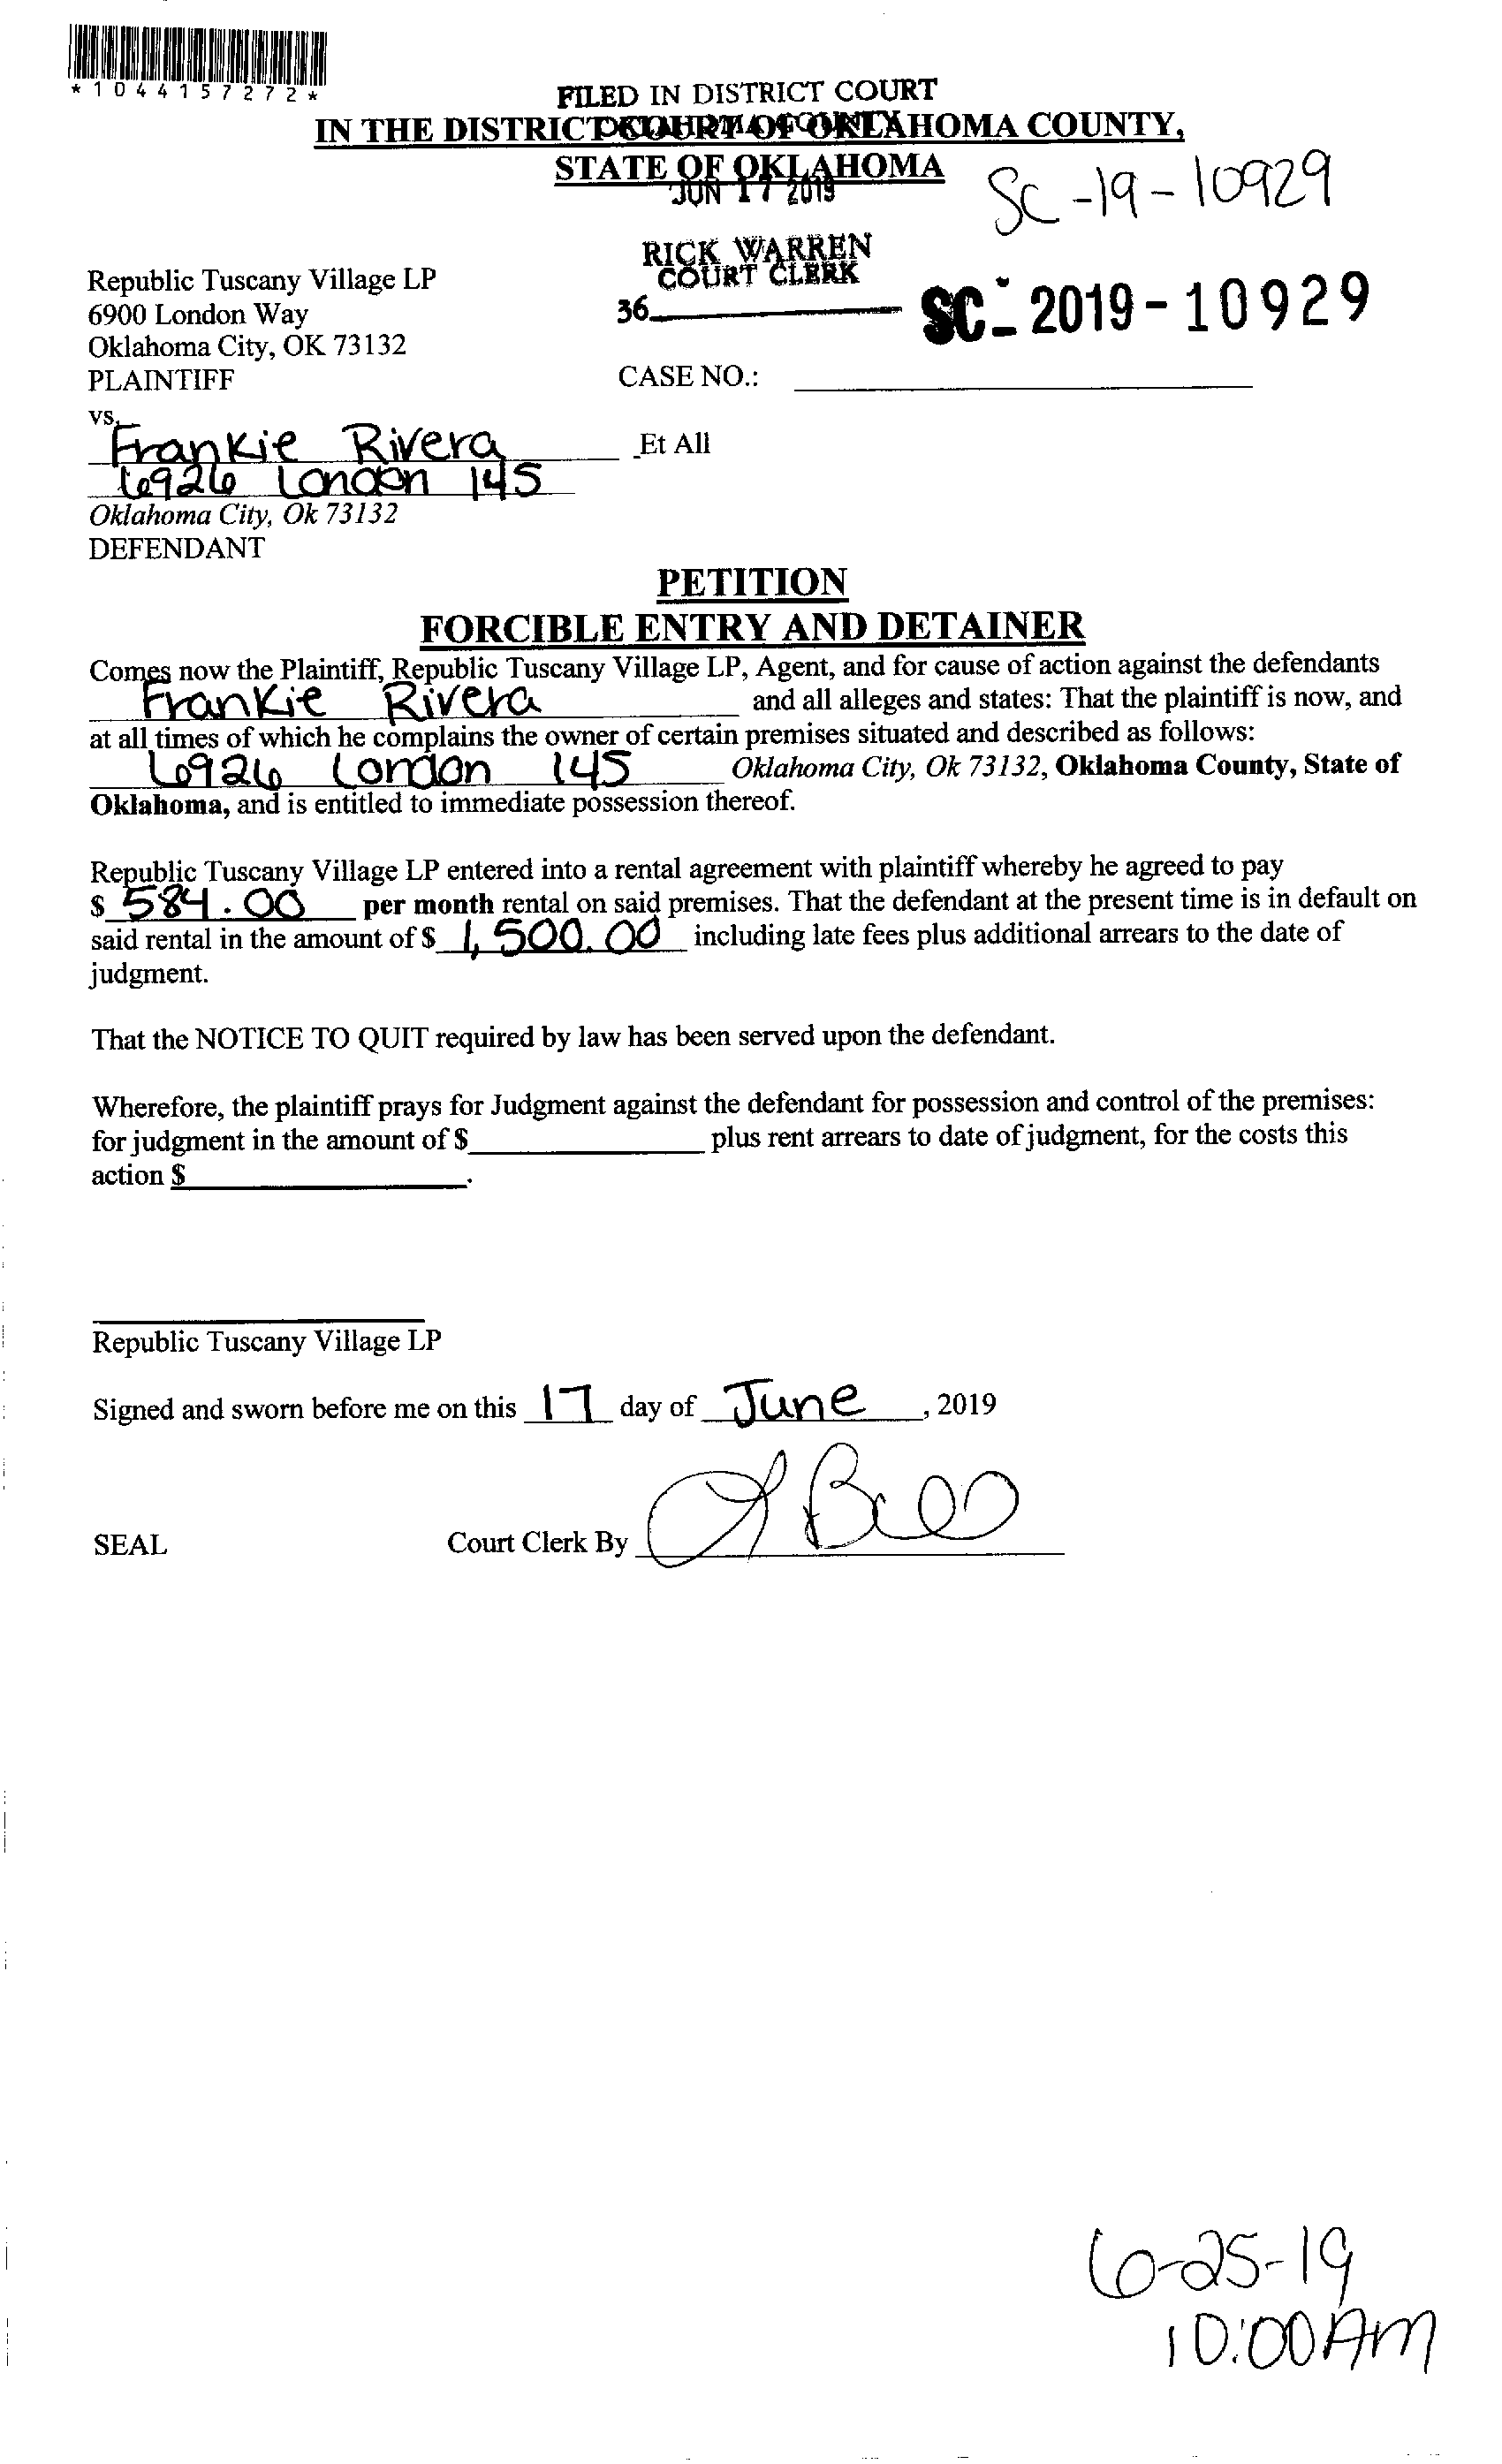 *1044157272*
FILED IN DISTRICT COURT
IN THE DISTRICT COURT OF OKLAHOMA COUNTY,
STATE OF OKLAHOMA
JUN 17 2019
SC-19-10929
RICK WARREN
COURT CLERK
36
SC-2019-10929
Republic Tuscany Village LP
6900 London Way
Oklahoma City, OK 73132
PLAINTIFF
CASE NO.:
vs.
Frankie Rivera Et All
6926 London 145
Oklahoma City, Ok 73132
DEFENDANT
PETITION
FORCIBLE ENTRY AND DETAINER
Comes now the Plaintiff, Republic Tuscany Village LP, Agent, and for cause of action against the defendants
Frankie Rivera and all alleges and states: That the plaintiff is now, and
at all times of which he complains the owner of certain premises situated and described as follows:
6926 London 145 Oklahoma City, Ok 73132, Oklahoma County, State of
Oklahoma, and is entitled to immediate possession thereof.
Republic Tuscany Village LP entered into a rental agreement with plaintiff whereby he agreed to pay
$ 584.00 per month rental on said premises. That the defendant at the present time is in default on
said rental in the amount of $ 1,500.00 including late fees plus additional arrears to the date of
judgment.
That the NOTICE TO QUIT required by law has been served upon the defendant.
Wherefore, the plaintiff prays for Judgment against the defendant for possession and control of the premises:
for judgment in the amount of $ plus rent arrears to date of judgment, for the costs this
action $ .
Republic Tuscany Village LP
Signed and sworn before me on this 17 day of June, 2019
SEAL
Court Clerk By
6-25-19
10:00AM